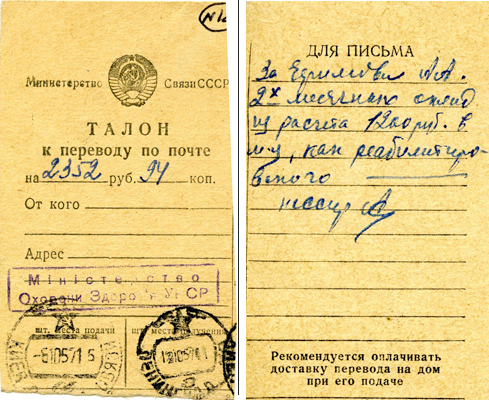 Министерство Связи СССР
ТАЛОН
к переводу по почте
на 2352 руб. 94 коп.
От кого
Адрес
Міністерство
Охорони Здоров'я УРСР
шт. места подачи
шт. места получения
КИЕВ
ДЛЯ ПИСЬМА
За А А.
2х месячный оклад
из расчета 1200 руб. в
м-ц, как реабилитиро-
ванного
Рекомендуется оплачивать
доставку перевода на дом
при его подаче